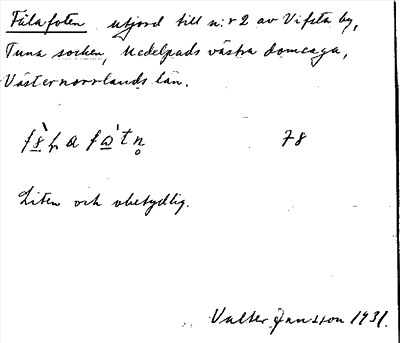 Fälafoten utjord till n:r 2 av Vifsta by,
Tuna socken, Medelpads västra domsaga,
Västernorrlands län.
78
Liten och obetydlig.
Valter Jansson 1931.